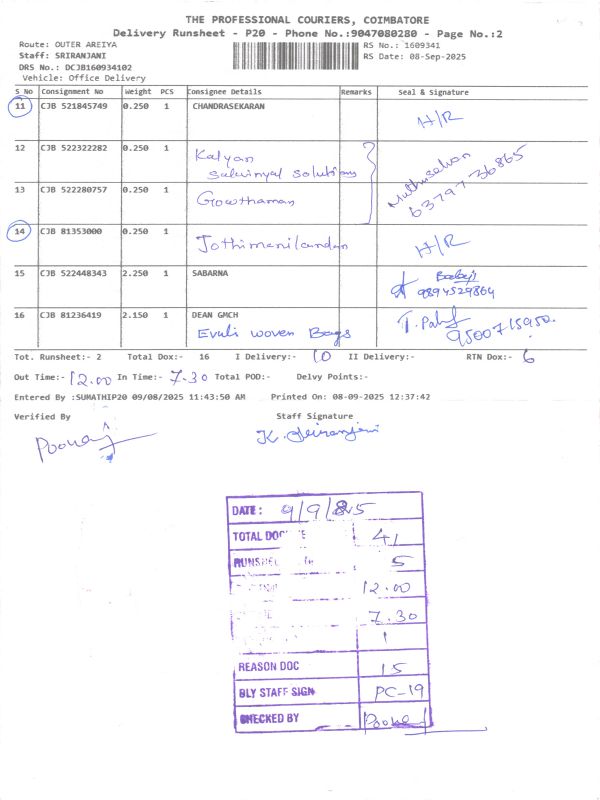 THE PROFESSIONAL COURIERS, COIMBATORE
Delivery Runsheet - P20 - Phone No.:9047080280 - Page No.:2
Route: OUTER AREIYA RS No.: 1609341
Staff: SRIRANJANI RS Date: 08-Sep-2025
DRS No.: DCJB160934102
Vehicle: Office Delivery
S No Consignment No Weight PCS Consignee Details Remarks Seal & Signature
11 CJB 521845749 0.250 1 CHANDRASEKARAN
H/R
12 CJB 522322282 0.250 1 Kalyan
solutions
13 CJB 522280757 0.250 1 Gowthaman
63797 36865
14 CJB 81353000 0.250 1 Jothimanilandan H/R
15 CJB 522448343 2.250 1 SABARNA Balaji
9894529864
16 CJB 81236419 2.150 1 DEAN GMCH
Evuli woven Bags 9500715950.
Tot. Runsheet:- 2 Total Dox:- 16 I Delivery:- 10 II Delivery:- RTN Dox:- 6
Out Time:- 12.00 In Time:- 7.30 Total POD:- Delvy Points:-
Entered By :SUMATHIP20 09/08/2025 11:43:50 AM Printed On: 08-09-2025 12:37:42
Verified By Staff Signature
K. Sriranjani
DATE: 9/9/25
TOTAL DOC 41
RUNSHEET 5
12.00
7.30
1
REASON DOC 15
DLY STAFF SIGN PC-19
CHECKED BY